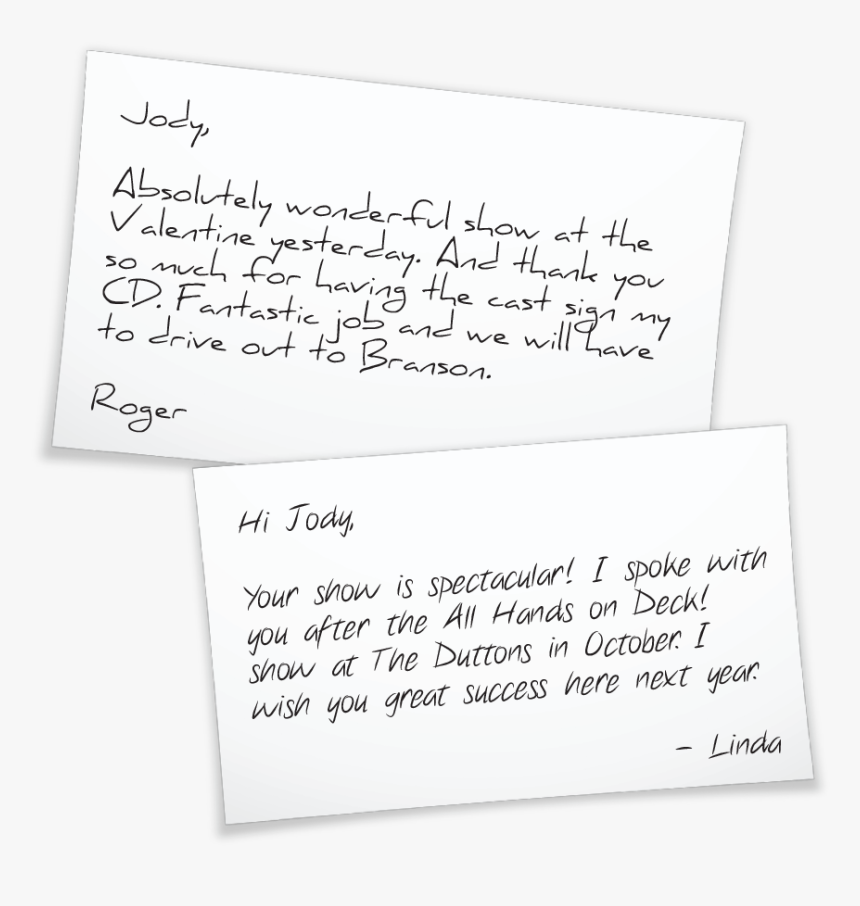 Jody,
Absolutely wonderful show at the
Valentine yesterday. And thank you
so much for having the cast sign my
CD. Fantastic job and we will have
to drive out to Branson.
Roger
Hi Jody,
Your show is spectacular! I spoke with
you after the All Hands on Deck!
show at The Duttons in October. I
wish you great success here next year.
- Linda